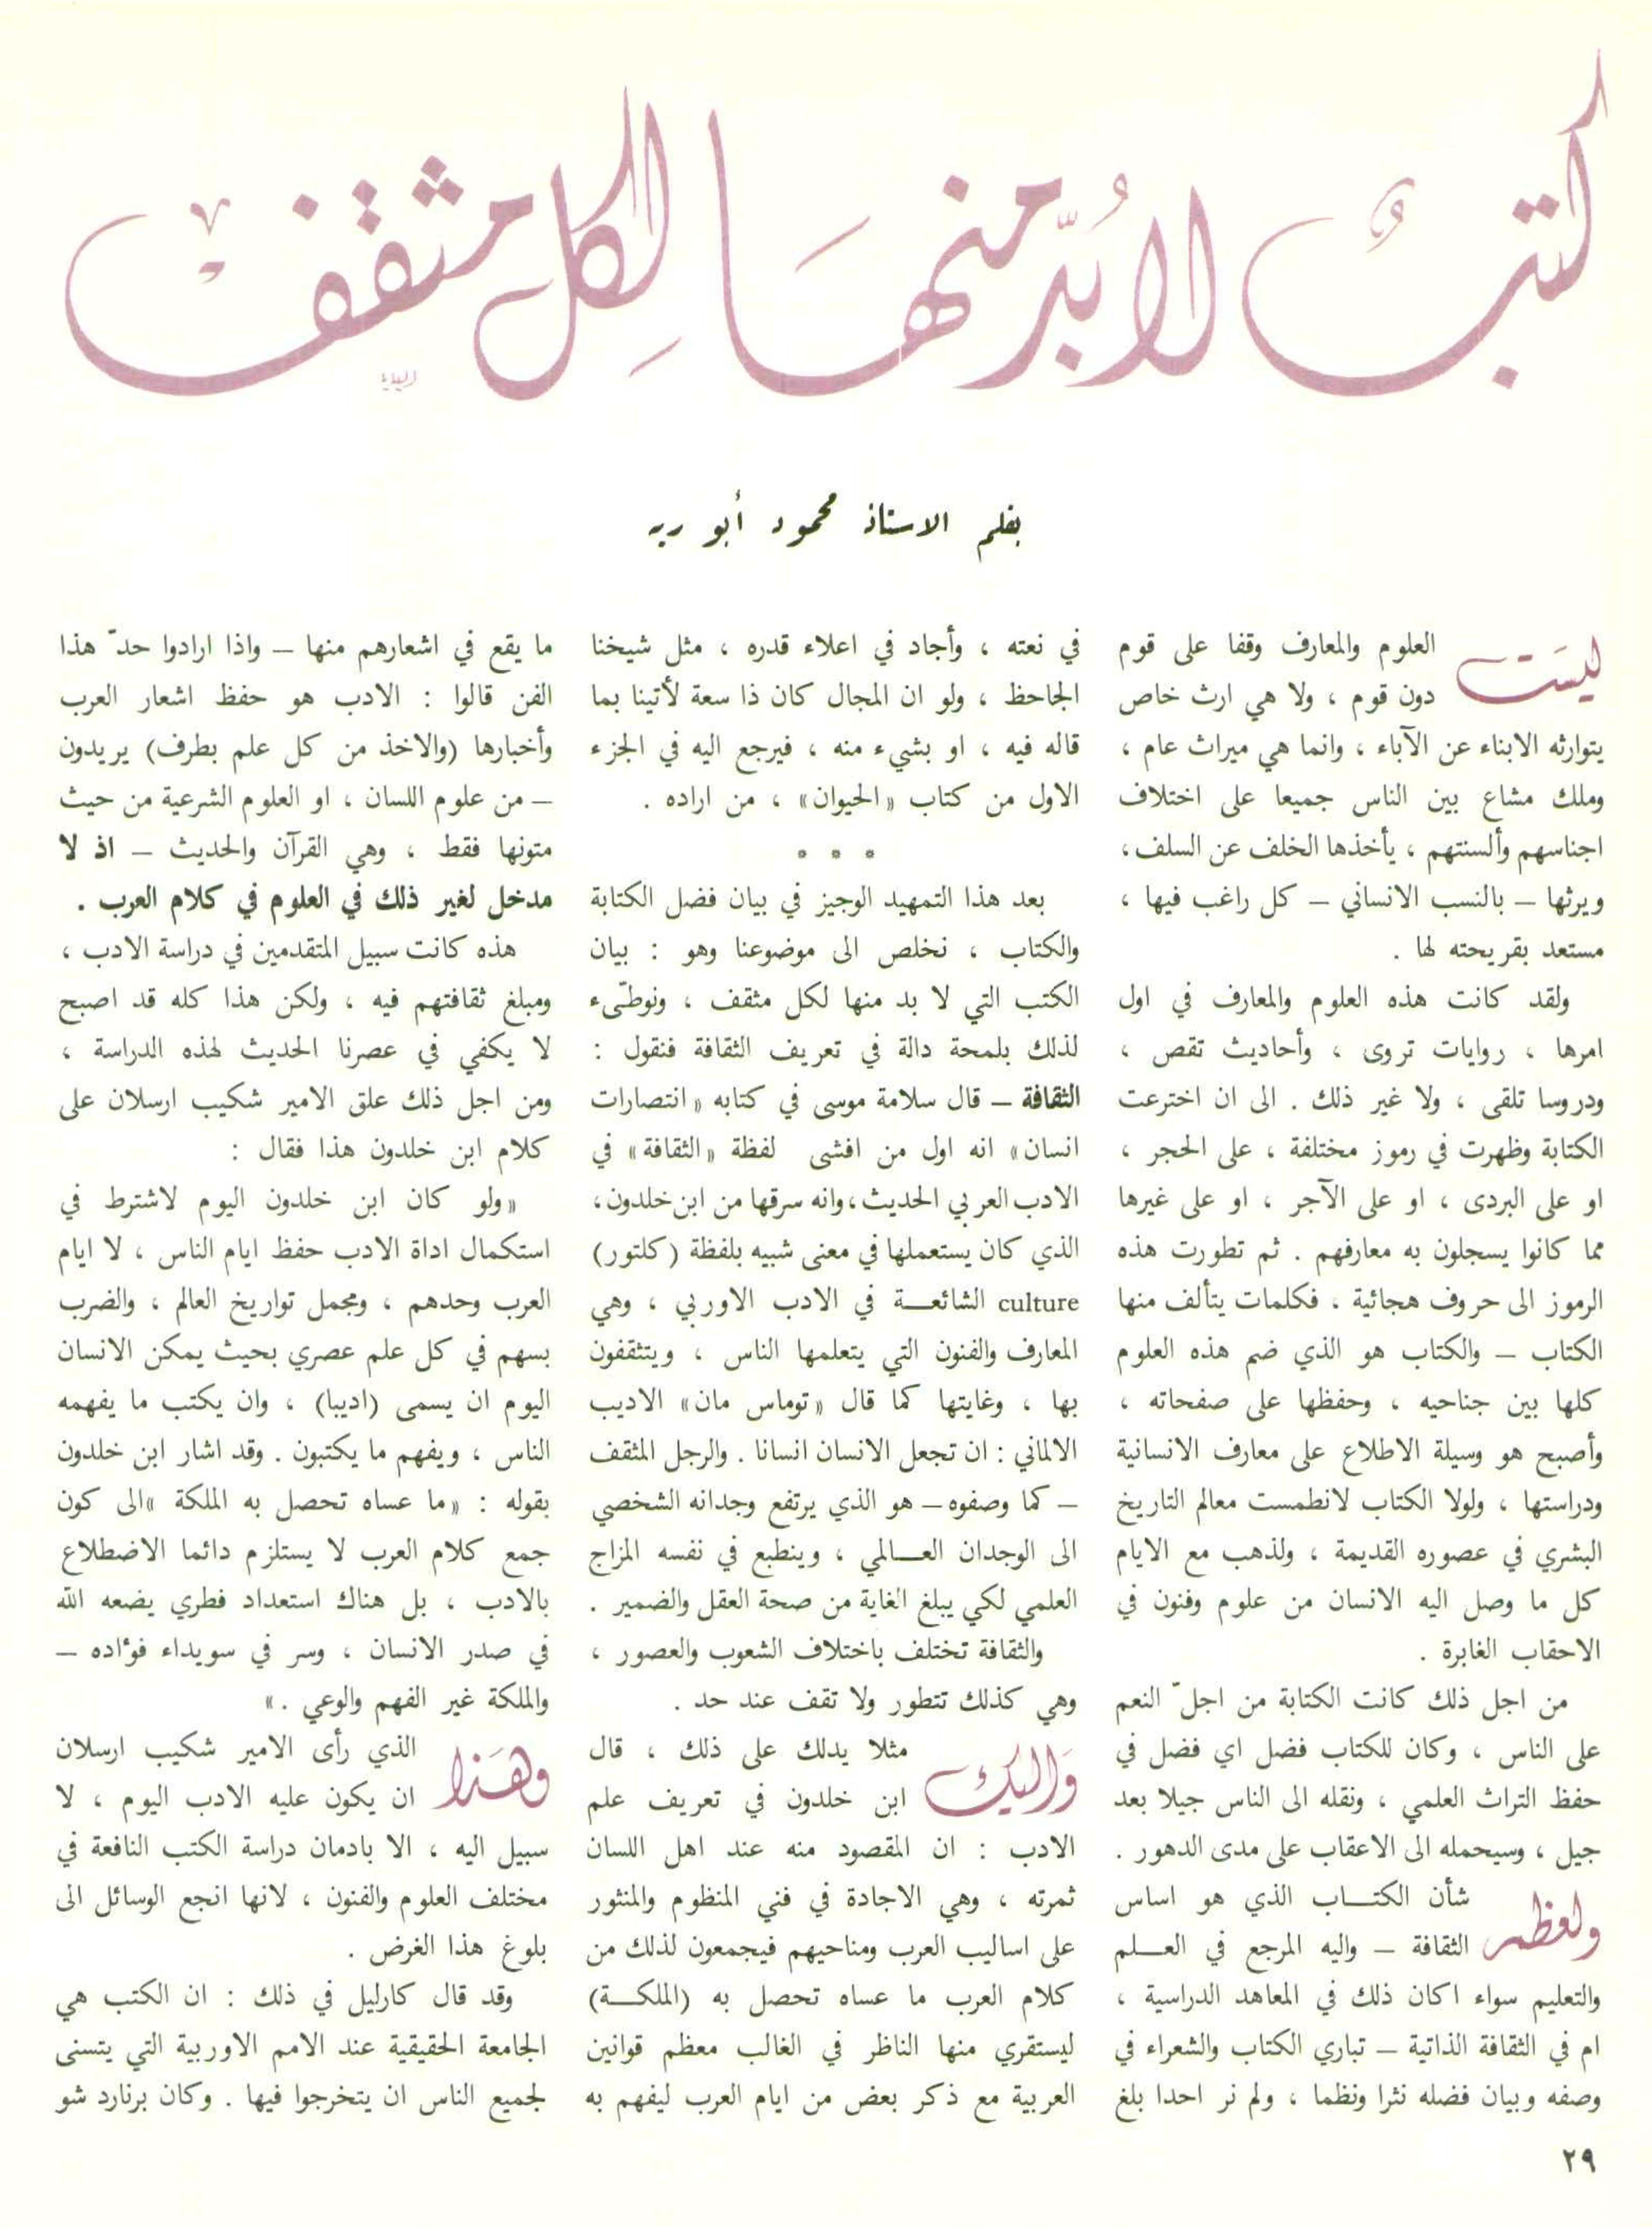 كتبٌ لابُدّ منهَا لِكل مثقف
بقلم الاستاذ محمود أبو ريه
ليسَت العلوم والمعارف وقفا على قوم
دون قوم ، ولا هي ارث خاص
يتوارثه الابناء عن الآباء ، وانما هي ميراث عام ،
وملك مشاع بين الناس جميعا على اختلاف
اجناسهم وألسنتهم ، يأخذها الخلف عن السلف،
ويرثها – بالنسب الانساني – كل راغب فيها ،
مستعد بقريحته لها .
ولقد كانت هذه العلوم والمعارف في اول
امرها ، روايات تروى ، وأحاديث تقص ،
ودروسا تلقى ، ولا غير ذلك . الى ان اخترعت
الكتابة وظهرت في رموز مختلفة ، على الحجر ،
او على البردى ، او على الآجر ، او على غيرها
مما كانوا يسجلون به معارفهم . ثم تطورت هذه
الرموز الى حروف هجائية ، فكلمات يتألف منها
الكتاب – والكتاب هو الذي ضم هذه العلوم
كلها بين جناحيه ، وحفظها على صفحاته ،
وأصبح هو وسيلة الاطلاع على معارف الانسانية
ودراستها ، ولولا الكتاب لانطمست معالم التاريخ
البشري في عصوره القديمة ، ولذهب مع الايام
كل ما وصل اليه الانسان من علوم وفنون في
الاحقاب الغابرة .
من اجل ذلك كانت الكتابة من اجلّ النعم
على الناس ، وكان للكتاب فضل اي فضل في
حفظ التراث العلمي ، ونقله الى الناس جيلا بعد
جيل ، وسيحمله الى الاعقاب على مدى الدهور .
ولعظم شأن الكتــاب الذي هو اساس
الثقافة – واليه المرجع في العــلم
والتعليم سواء اكان ذلك في المعاهد الدراسية ،
ام في الثقافة الذاتية – تبارى الكتاب والشعراء في
وصفه وبيان فضله نثرا ونظما ، ولم نر احدا بلغ
في نعته ، وأجاد في اعلاء قدره ، مثل شيخنا
الجاحظ ، ولو ان المجال كان ذا سعة لأتينا بما
قاله فيه ، او بشيء منه ، فيرجع اليه في الجزء
الاول من كتاب «الحيوان» ، من اراده .
* * *
بعد هذا التمهيد الوجيز في بيان فضل الكتابة
والكتاب ، نخلص الى موضوعنا وهو : بيان
الكتب التي لا بد منها لكل مثقف ، ونوطّىء
لذلك بلمحة دالة في تعريف الثقافة فنقول :
الثقافة – قال سلامة موسى في كتابه «انتصارات
انسان» انه اول من افشى لفظة «الثقافة» في
الادب العربي الحديث، وانه سرقها من ابن خلدون،
الذي كان يستعملها في معنى شبيه بلفظة (كلتور)
culture الشائعــة في الادب الاوربي ، وهي
المعارف والفنون التي يتعلمها الناس ، ويتثقفون
بها ، وغايتها كما قال «توماس مان» الاديب
الالماني : ان تجعل الانسان انسانا . والرجل المثقف
– كما وصفوه – هو الذي يرتفع وجدانه الشخصي
الى الوجدان العــالمي ، وينطبع في نفسه المزاج
العلمي لكي يبلغ الغاية من صحة العقل والضمير .
والثقافة تختلف باختلاف الشعوب والعصور ،
وهي كذلك تتطور ولا تقف عند حد .
وَاليك مثلا يدلك على ذلك ، قال
ابن خلدون في تعريف علم
الادب : ان المقصود منه عند اهل اللسان
ثمرته ، وهي الاجادة في فني المنظوم والمنثور
على اساليب العرب ومناحيهم فيجمعون لذلك من
كلام العرب ما عساه تحصل به (الملكــة)
ليستقري منها الناظر في الغالب معظم قوانين
العربية مع ذكر بعض من ايام العرب ليفهم به
ما يقع في اشعارهم منها – واذا ارادوا حدّ هذا
الفن قالوا : الادب هو حفظ اشعار العرب
وأخبارها (والاخذ من كل علم بطرف) يريدون
– من علوم اللسان ، او العلوم الشرعية من حيث
متونها فقط ، وهي القرآن والحديث – اذ لا
مدخل لغير ذلك في العلوم في كلام العرب .
هذه كانت سبيل المتقدمين في دراسة الادب ،
ومبلغ ثقافتهم فيه ، ولكن هذا كله قد اصبح
لا يكفي في عصرنا الحديث لهذه الدراسة ،
ومن اجل ذلك علق الامير شكيب ارسلان على
كلام ابن خلدون هذا فقال :
«ولو كان ابن خلدون اليوم لاشترط في
استكمال اداة الادب حفظ ايام الناس ، لا ايام
العرب وحدهم ، ومجمل تواريخ العالم ، والضرب
بسهم في كل علم عصري بحيث يمكن الانسان
اليوم ان يسمى (اديبا) ، وان يكتب ما يفهمه
الناس ، ويفهم ما يكتبون . وقد اشار ابن خلدون
بقوله : «ما عساه تحصل به الملكة »الى كون
جمع كلام العرب لا يستلزم دائما الاضطلاع
بالادب ، بل هناك استعداد فطري يضعه الله
في صدر الانسان ، وسر في سويداء فؤاده –
والملكة غير الفهم والوعي .»
وهَذا الذي رأى الامير شكيب ارسلان
ان يكون عليه الادب اليوم ، لا
سبيل اليه ، الا بادمان دراسة الكتب النافعة في
مختلف العلوم والفنون ، لانها انجع الوسائل الى
بلوغ هذا الغرض .
وقد قال كارليل في ذلك : ان الكتب هي
الجامعة الحقيقية عند الامم الاوربية التي يتسنى
لجميع الناس ان يتخرجوا فيها . وكان برنارد شو
٢٩